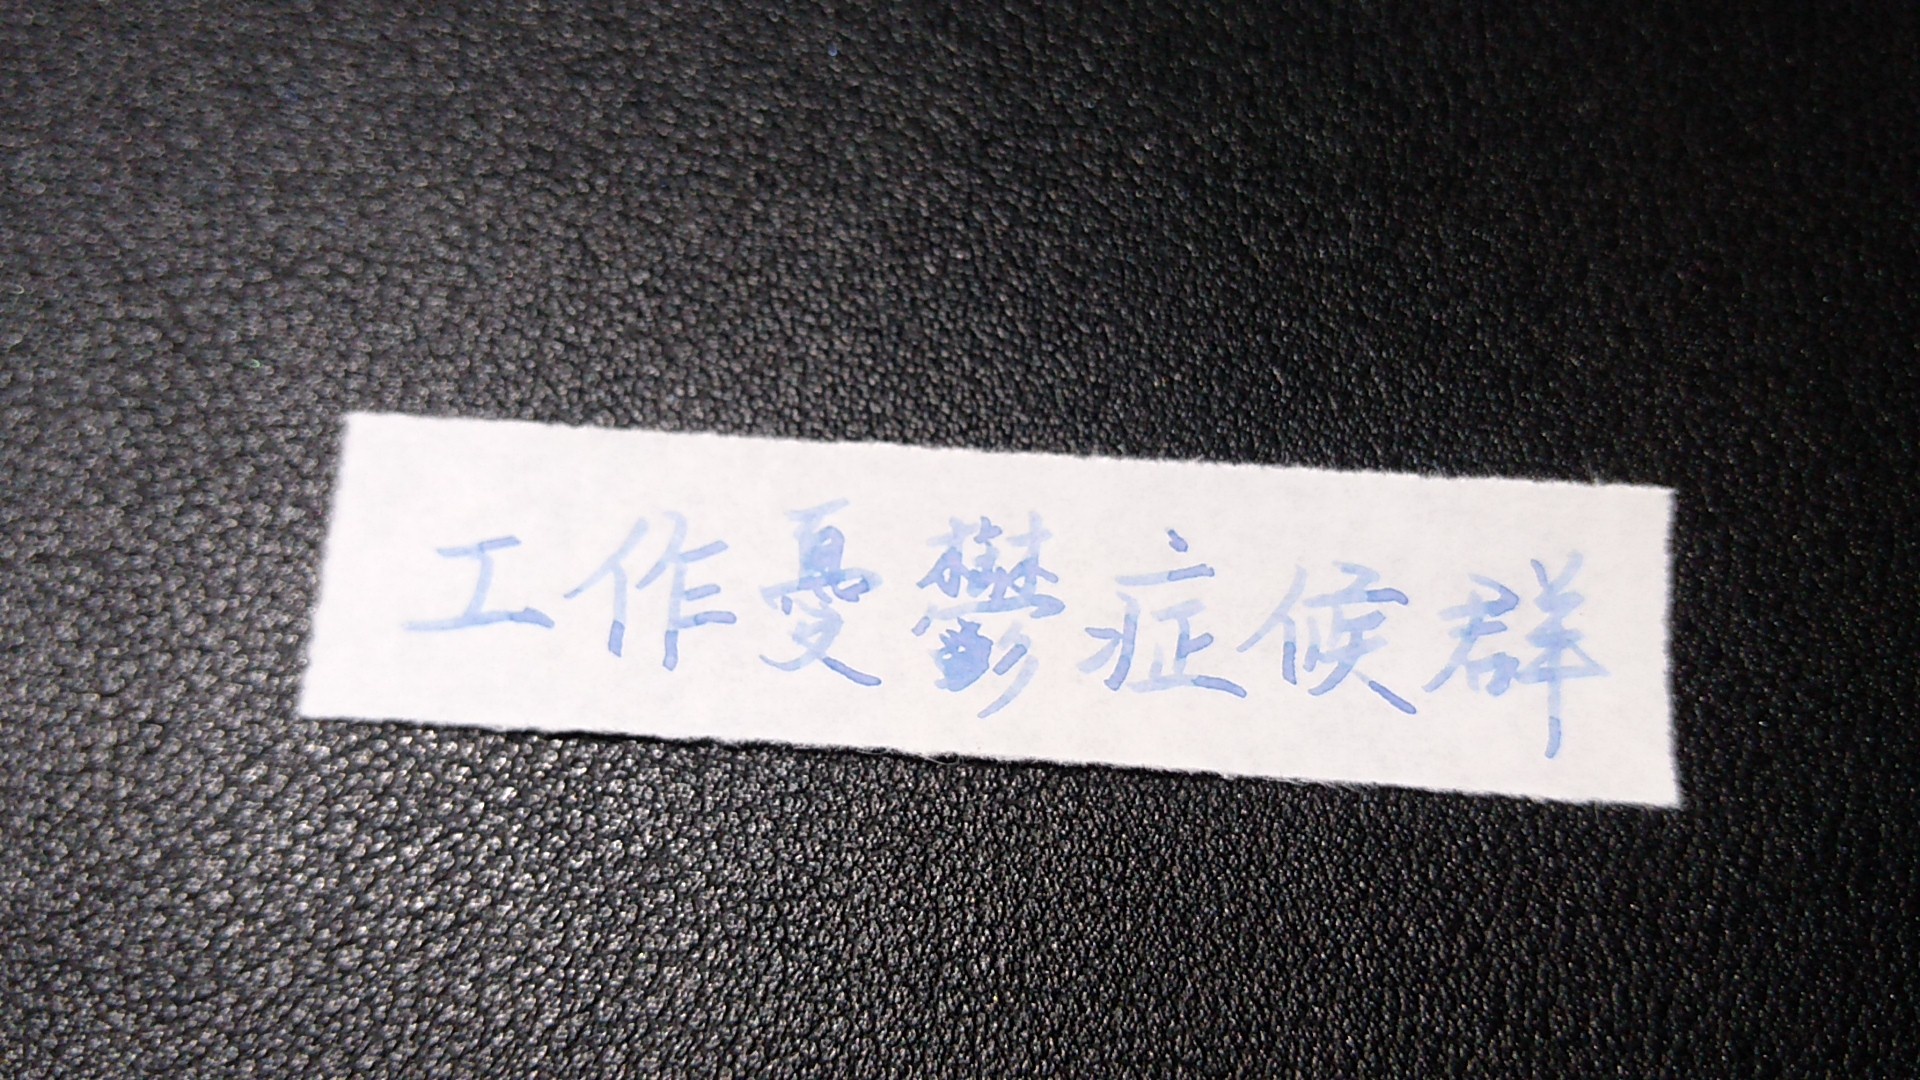 工作憂鬱症候群